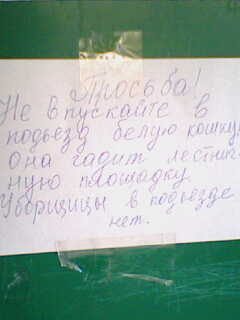 Просьба!
Не впускайте в
подъезд белую кошку,
она гадит лестнич-
ную площадку.
Уборщицы в подъезде
нет.